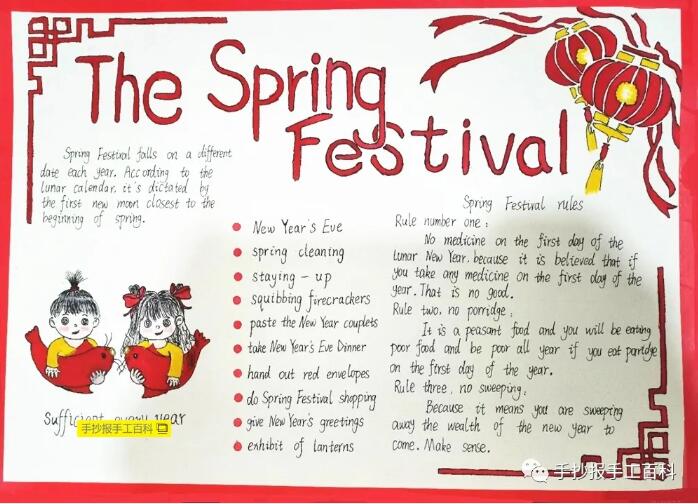 The Spring
Festival
Spring Festival falls on a different
date each year. According to the
lunar calendar, it's dictated by
the first new moon closest to the
beginning of spring.
New Year's Eve
spring cleaning
staying-up
squibbing firecrackers
paste the New Year couplets
take New Year's Eve Dinner
hand out red envelopes
do Spring Festival shopping
give New Year's greetings
exhibit of lanterns
Spring Festival rules
Rule number one:
No medicine on the first day of the
lunar New Year. because it is believed that if
you take any medicine on the first day of the
year. That is no good.
Rule two, no porridge:
It is a peasant food and you will be eating
poor food and be poor all year if you eat porridge
on the first day of the year.
Rule three, no sweeping:
Because it means you are sweeping
away the wealth of the new year to
come. Make sense.
sufficient every year
手抄报手工百科
手抄报手工百科